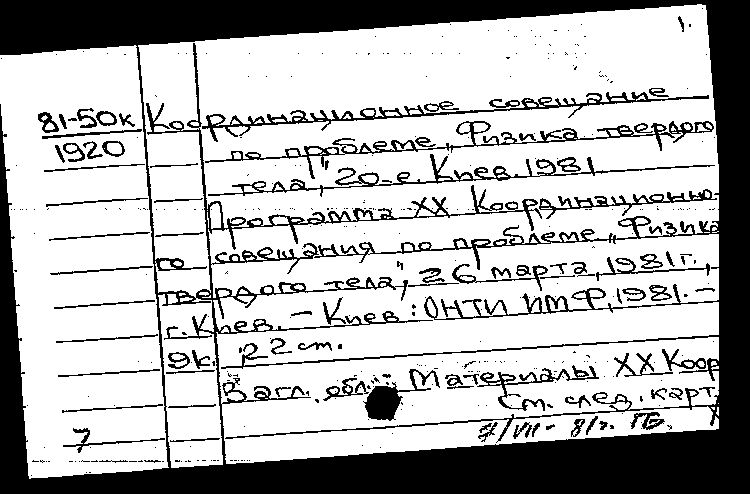 1.
81-50к Координационное совещание
1920 по проблеме „Физика твердого
тела", 20-е. Киев. 1981
Программа XX Координационно-
го совещания по проблеме „Физика
твердого тела", 26 марта, 1981 г.,
г. Киев. – Киев : ОНТИ ИМФ, 1981. –
9к. 22 ст.
Загл. обл.: Материалы XX Коор
См. след. карт.
7 7/VII- 81г. ГБ.